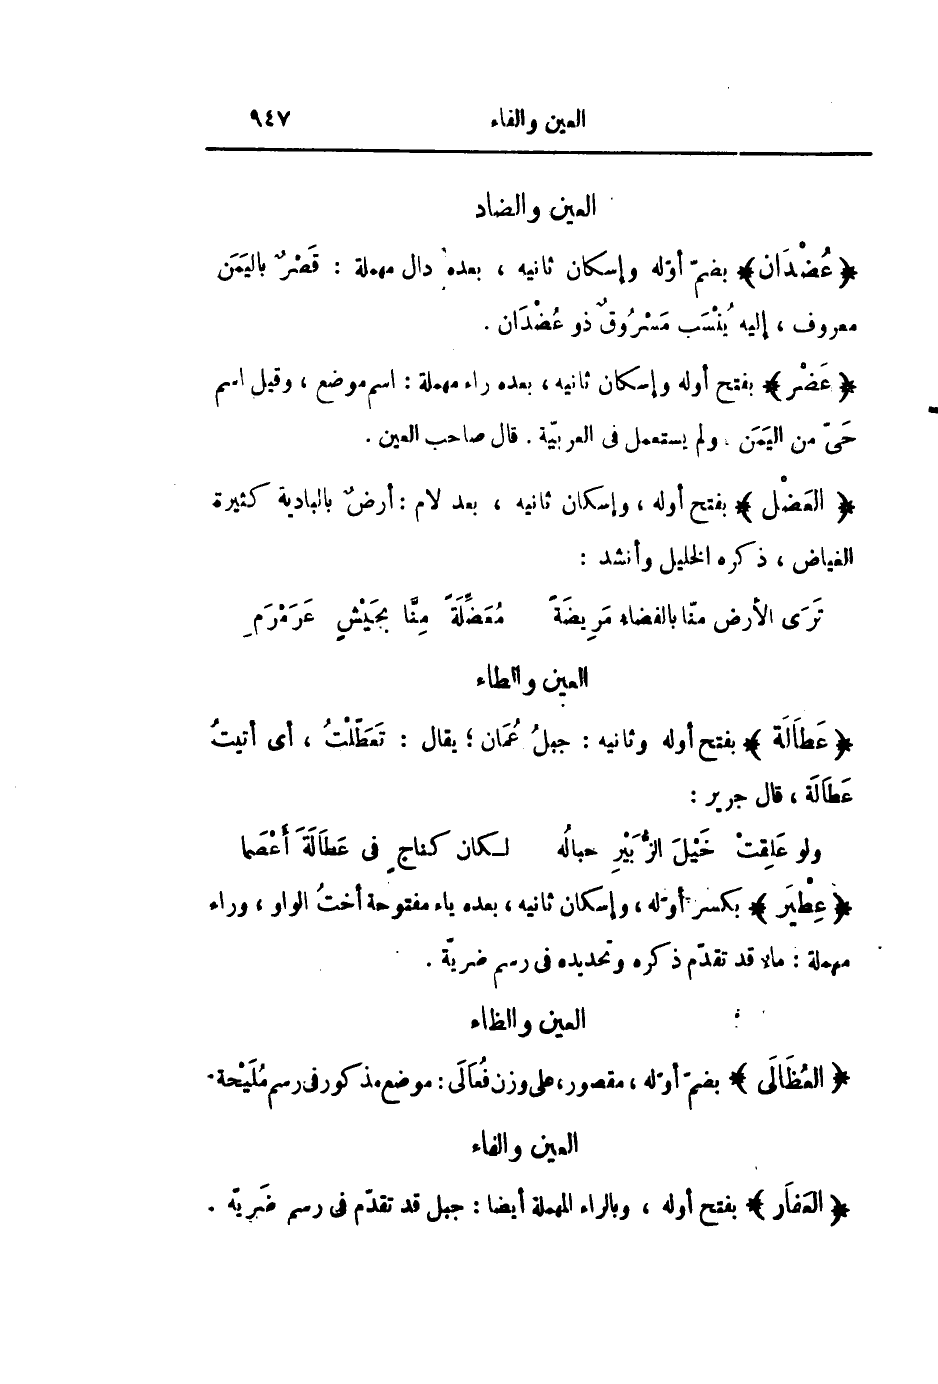 العين والفاء ٩٤٧
العين والضاد
﴿عُضْدَان﴾ بضمّ أوّله وإسكان ثانيه ، بعده دال مهملة : قَصْرٌ باليَمَن
معروف ، إليه يُنْسَب مَسْرُوقٌ ذو عُضْدَان .
﴿عَضْر﴾ بفتح أوله وإسكان ثانيه ، بعده راء مهملة : اسم موضع ، وقيل اسم
حَىّ من اليَمَن . ولم يستعمل فى العربيّة . قال صاحب العين .
﴿ العَضْل ﴾ بفتح أوله ، وإسكان ثانيه ، بعد لام : أرضٌ بالبادية كثيرة
الغياض ، ذكره الخليل وأنشد :
تَرَى الأرض منّا بالفضاء مَرِيضَةً مُعَضِّلَةً مِنَّا بجَيْشٍ عَرَمْرَمِ
العين والطاء
﴿عَطَالَة ﴾ بفتح أوله وثانيه : جبلُ عُمَان ؛ يقال : تَعَطَّلْتُ ، أى أتيتُ
عَطَالَة ، قال جرير :
ولو عَلِقتْ خَيْلَ الزُّبَيْرِ حبالُه لكان كناجٍ فى عَطَالَةَ أَعْصَما
﴿عِطْيَر ﴾ بكسر أوّله ، وإسكان ثانيه ، بعده ياء مفتوحة أختُ الواو ، وراء
مهملة : ماء قد تقدّم ذكره وتحديده فى رسم ضريّة .
العين والظاء
﴿ العُظَالَى ﴾ بضمّ أوّله ، مقصور، على وزن فُعَالَى : موضع مذكور فى رسم مُلَيْحة
العين والفاء
﴿العَفَار ﴾ بفتح أوله ، وبالراء المهملة أيضا : جبل قد تقدّم فى رسم ضَرِيّه .